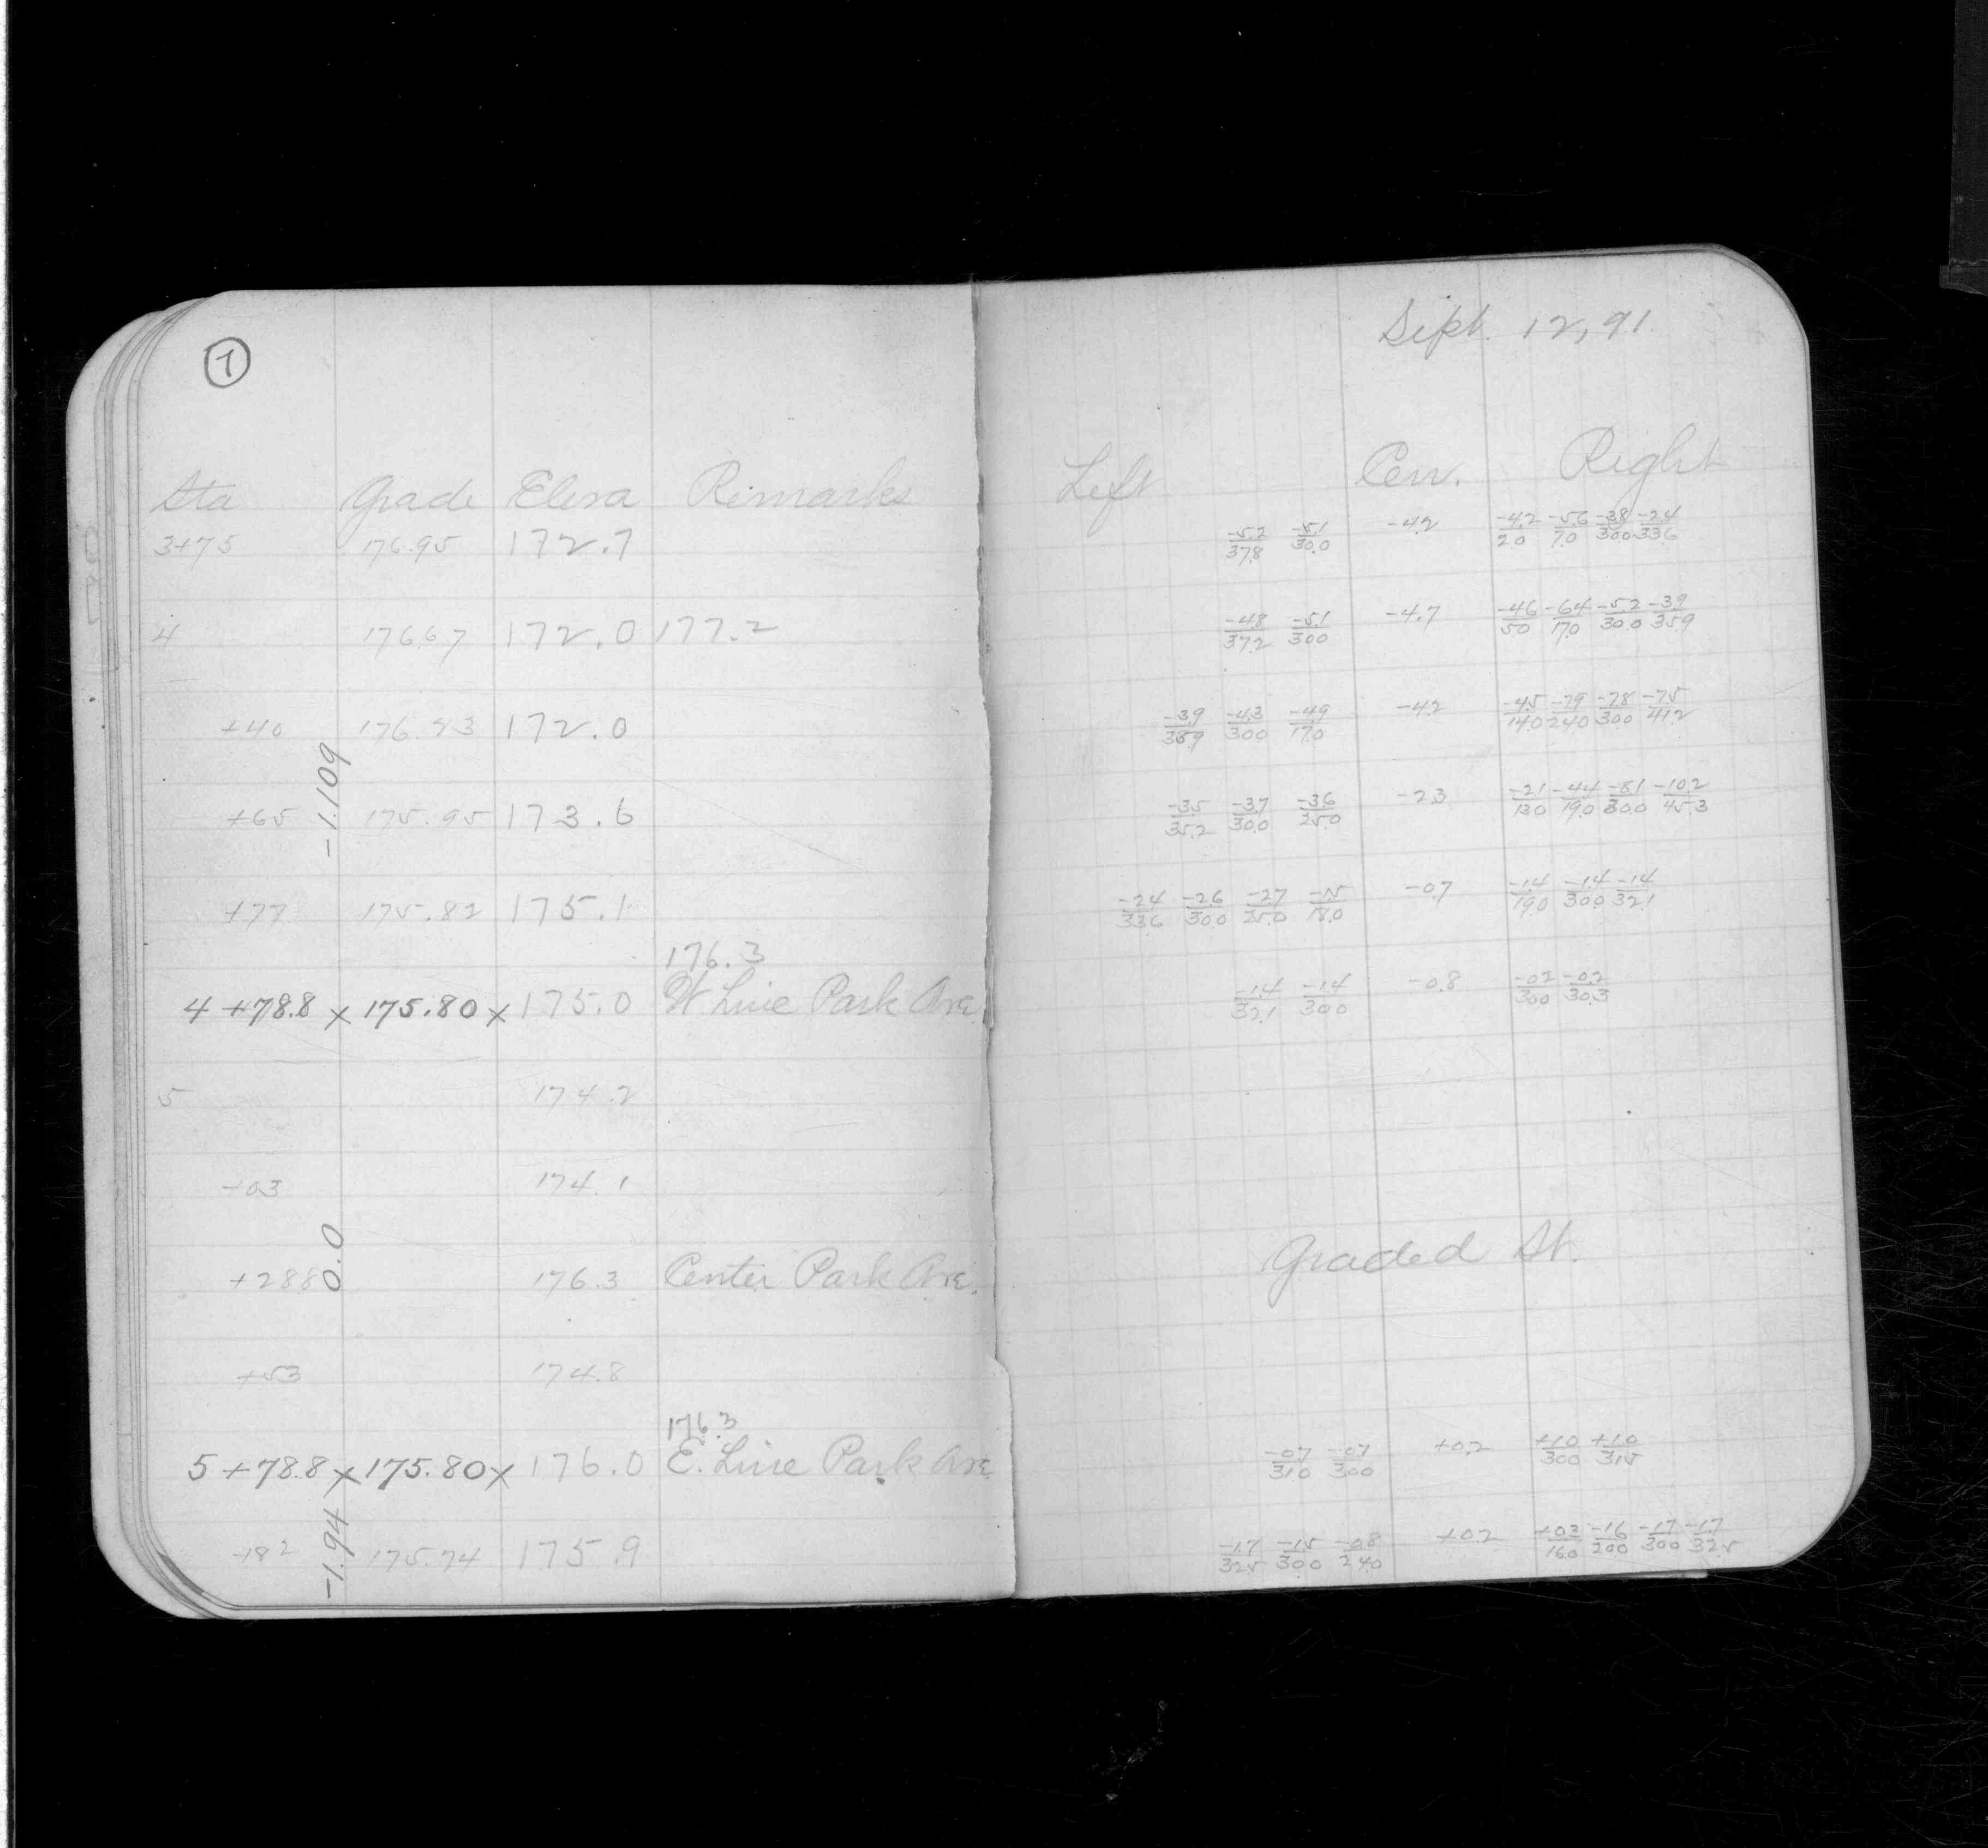 7
Sta Grade Eleva Remarks
3+75 176.95 172.7
4 176.67 172.0 177.2
+40 172.0
-1.109
+65 175.95 173.6
+77 175.82 175.1
176.3
4 +78.8 x 175.80 x 175.0 W Line Park Ave
5 174.2
+03 174.1
0.0
+288 176.3 Center Park Ave.
+53 174.8
176.3
5 +78.8 x 175.80 x 176.0 E. Line Park Ave
-1.94
175.74 175.9
Sept. 12, 91
Left Cen. Right
-5.2/37.8 -5.1/30.0 -4.2 -4.2/20 -5.6/7.0 -3.8/300 -2.4/336
-4.8/37.2 -5.1/300 -4.7 -46/50 -64/170 -5.2/30.0 -3.9/359
-3.9/359 -4.3/300 -4.9/170 -4.2 -4.5/140 -79/240 -78/300 -75/41.2
-3.5/35.2 -3.7/30.0 -3.6/25.0 -2.3 -21/130 -44/190 -81/300 -10.2/45.3
-2.4/336 -2.6/300 -2.7/25.0 -15/18.0 -0.7 -1.4/190 -1.4/300 -1.4/321
-1.4/32.1 -1.4/300 -0.8 -02/300 -0.2/30.3
Graded St.
-07/310 -07/300 +0.2 +10/300 +1.0/315
-1.7/325 -15/300 -08/240 +0.2 +03/160 -16/200 -17/300 -1.7/325